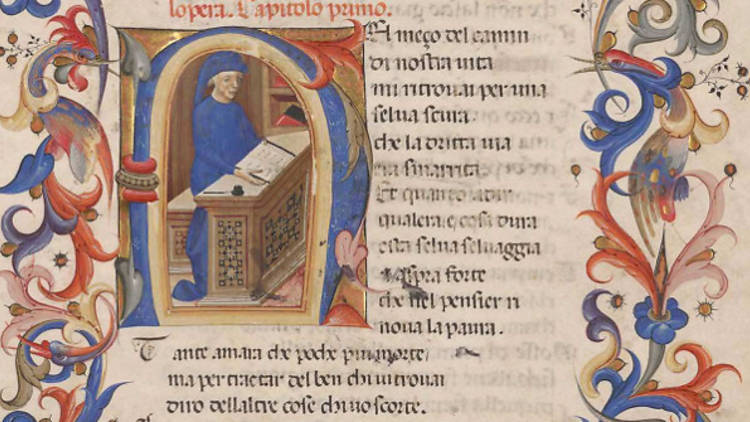 lopera. Capitolo primo.
NEl meço del camin
di nostra uita
mi ritrouai per una
selua scura.
che la dritta uia
era smarrita
Et quanto adir
qualera e cosa dura
esta selua seluaggia
aspra forte
che nel pensier ri
noua la paura.
Tante amara che poche piu morte
ma per tractar del ben chi ui trouai
diro dellaltre cose chi uo scorte.